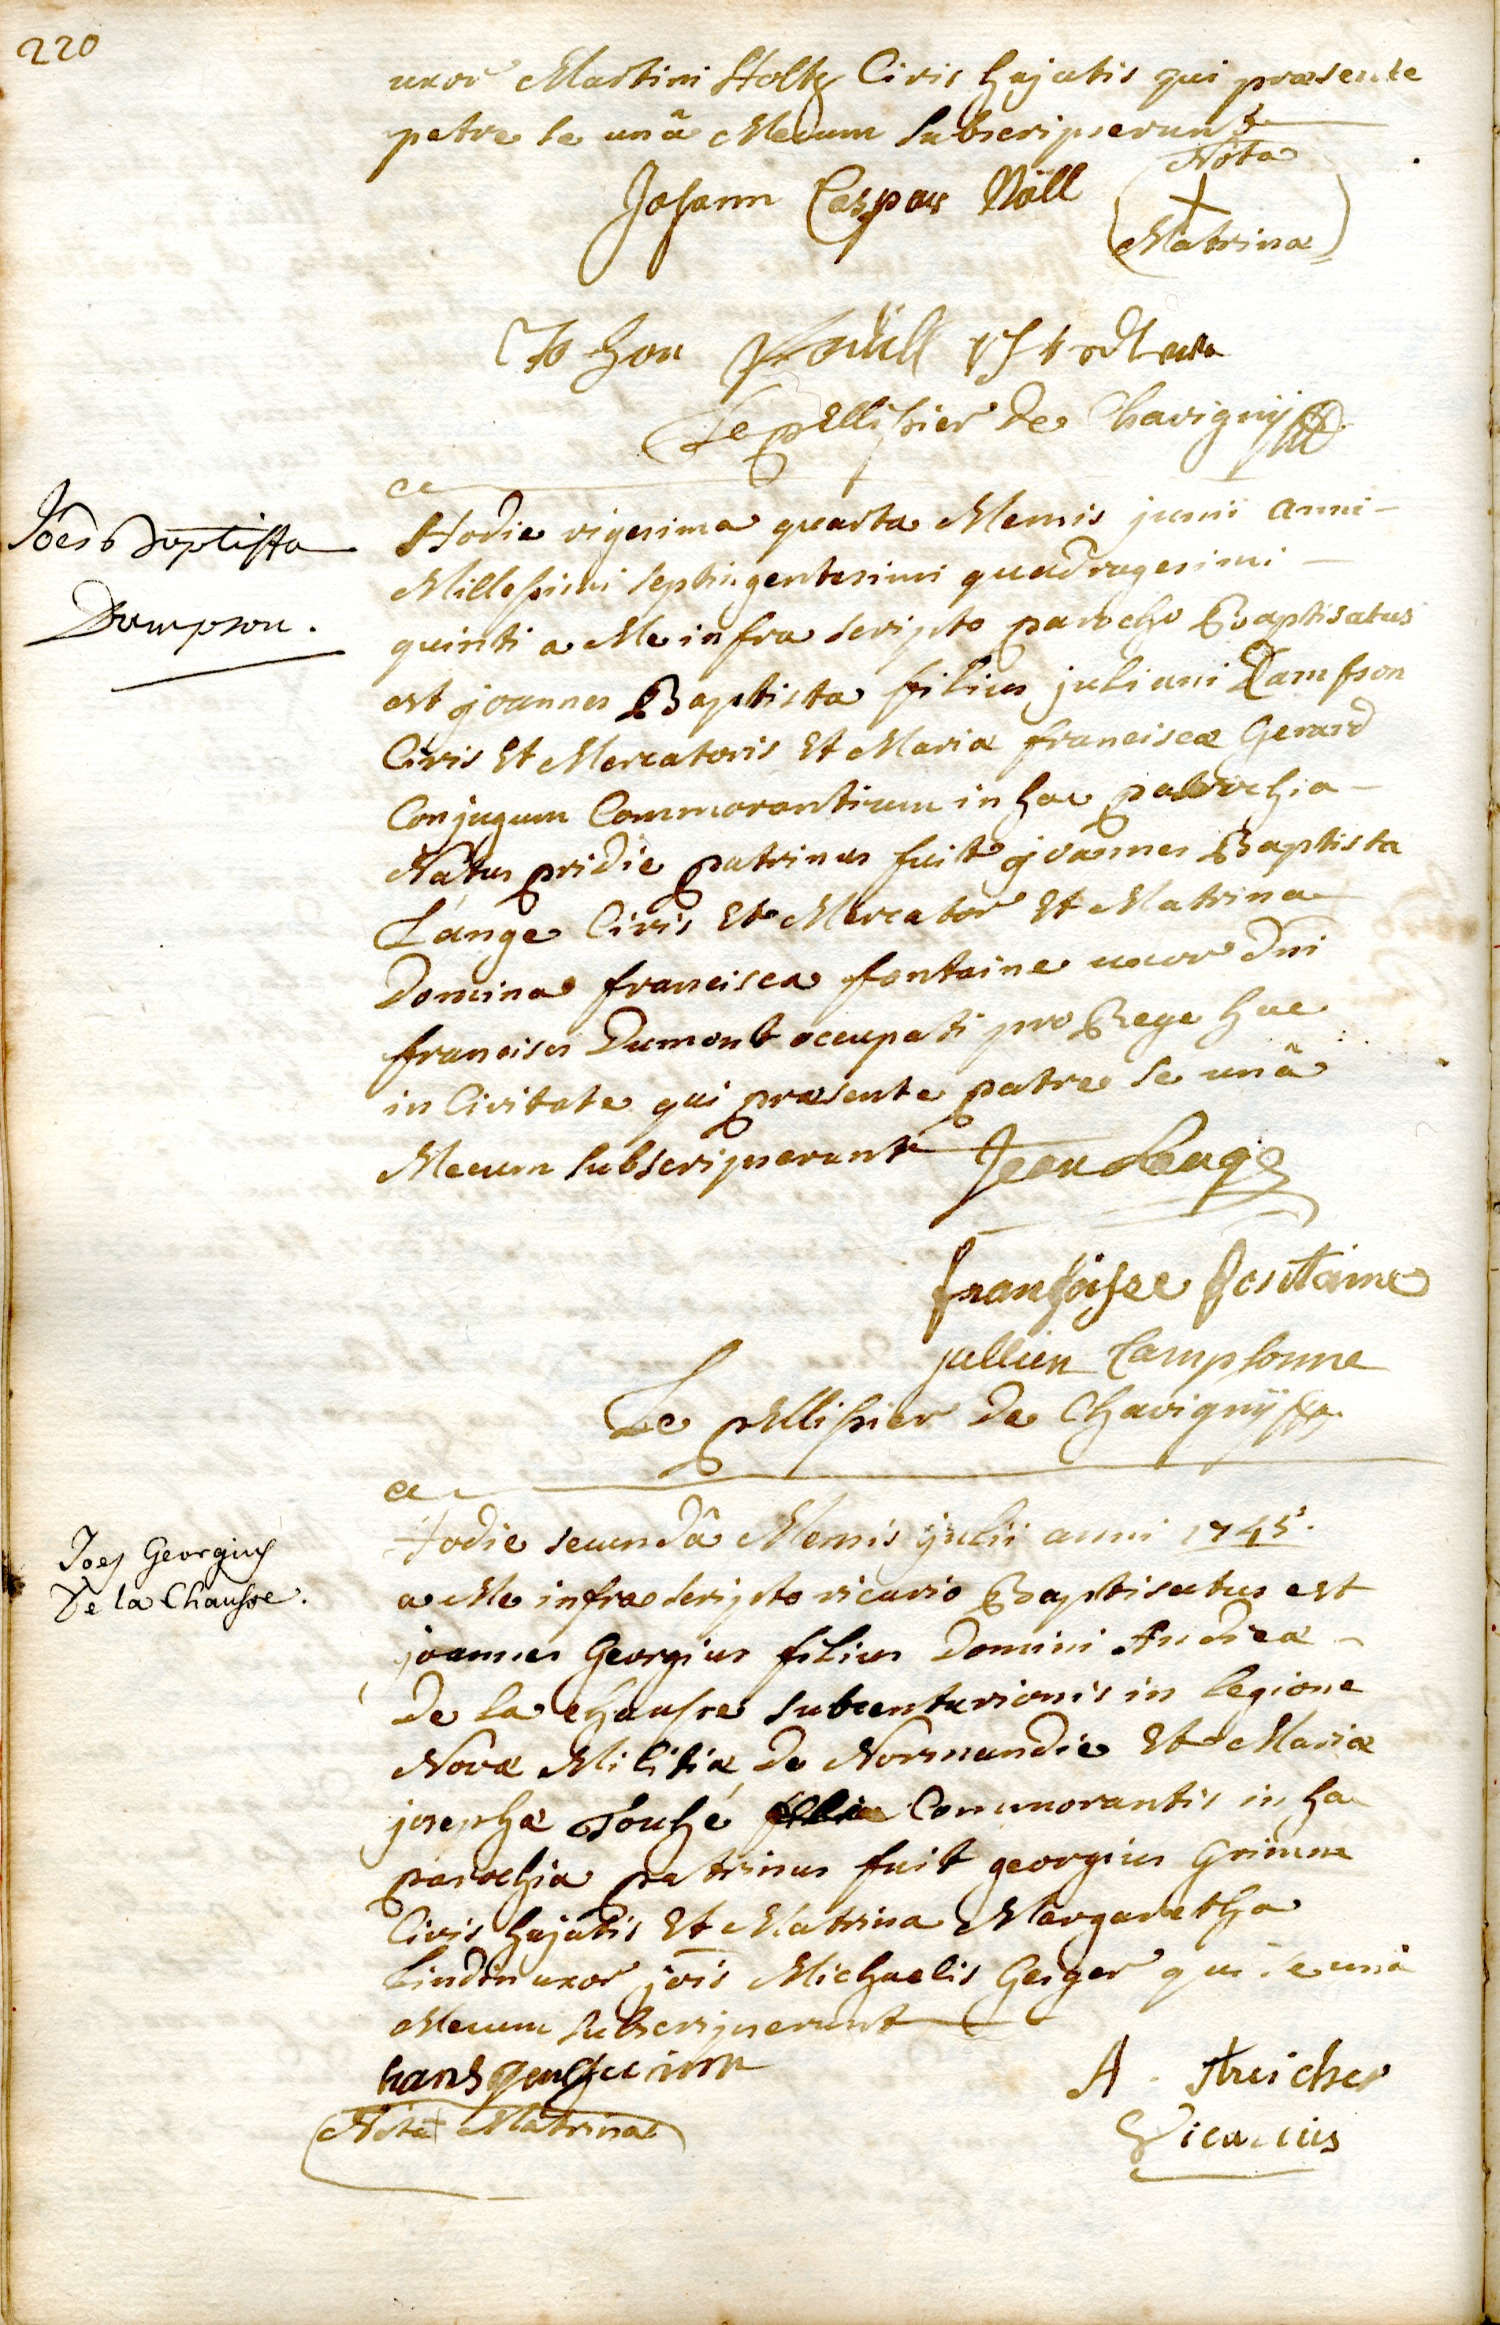 220
uxor Martini Holtz Civis hujatis qui præsente
patre se unâ Mecum subscripserunt
Johann Caspar Nöll
Nota
X
Matrinæ
Le pellissier de Chavignÿ
Joes Baptista
Dampson.
Hodie vigesima quarta Mensis junii anni
Millessimi septingentesimi quadragesimi
quinti a Me infra scripto parocho Baptisatus
est joannes Baptista filius juliani Damsson
Civis Et Mercatoris Et Mariæ franciscæ Gerard
Conjugum Commorantium in hac parochia
Natus pridie patrinus fuit joannes Baptista
Lange Civis Et Mercator Et Matrina
Domina francisca fontaine uxor dni
francisci Dumont occupati pro Rege hac
in Civitate qui præsente patre se unâ
Mecum subscripserunt Jean Lange
françoisse fontaine
jullien Campsonne
Le pellissier de Chavignÿ
Joes Georgius
De la Chausse.
Hodie secundâ Mensis julii anni 1745.
a Me infra scripto vicario Baptisatus est
joannes Georgius filius Domini Andreæ
de la chausse subcenturionis in legione
Novæ Militiæ de Normandie Et Mariæ
josephæ Touhé Commorantis in hac
parochia patrinus fuit georgius Grimm
Civis hujatis Et Matrina Margaretha
Lindin uxor jois Michaelis Geiger qui se unâ
Mecum subscripserunt
Nota + Matrinæ
A. Streicher
Vicarius